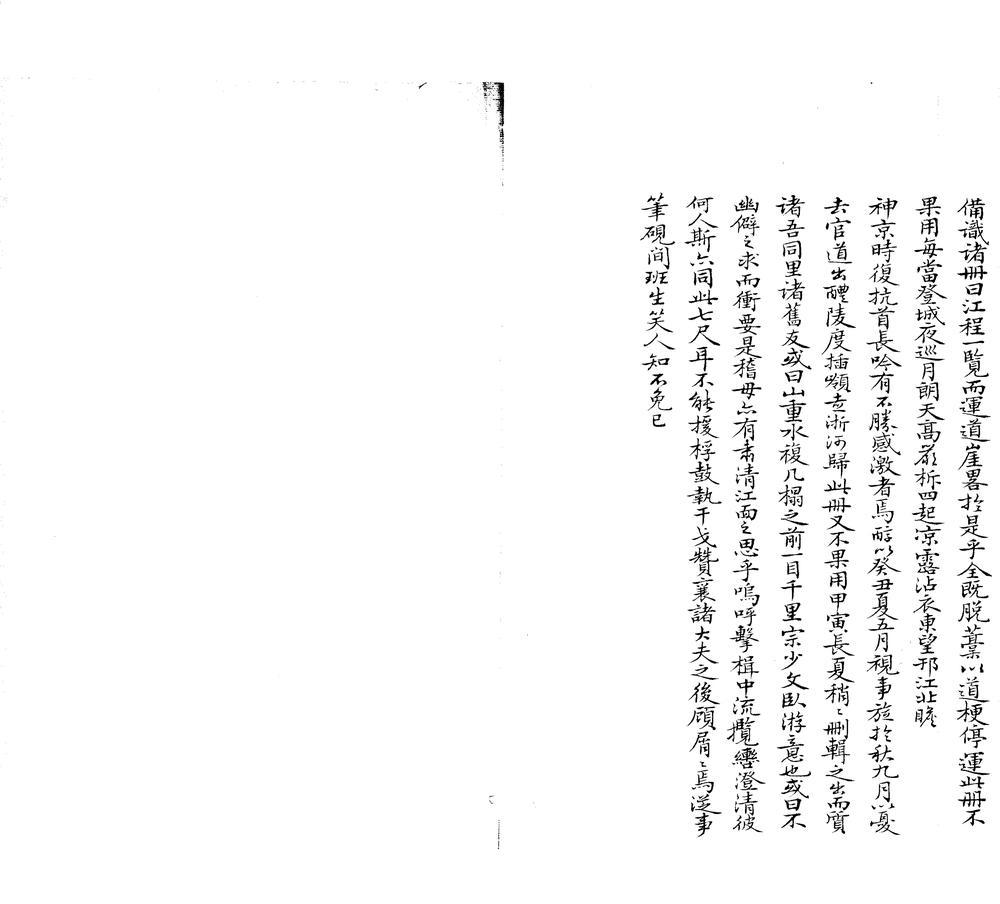 備識诸冊曰江程一覽而運道崖畧扵是乎全既脱藁以道梗停運此冊不
果用每當登城夜巡月朗天高嚴柝四起凉露沾衣東望邗江北瞻
神京時復抗首長吟有不勝感激者焉醇以癸丑夏五月視事旋扵秋九月以憂
去官道出醴陵度插嶺走浙河歸此冊又不果用甲寅長夏稍〻删輯之出而質
诸吾同里诸舊友或曰山重水複几榻之前一目千里宗少文臥游意也或曰不
幽僻之求而衝要是稽毋亦有肅清江面之思乎嗚呼擊楫中流攬轡澄清彼
何人斯亦同此七尺耳不能援桴鼓執干戈贊襄諸大夫之後顧屑〻焉従事
筆硯间班生笑人知不免已